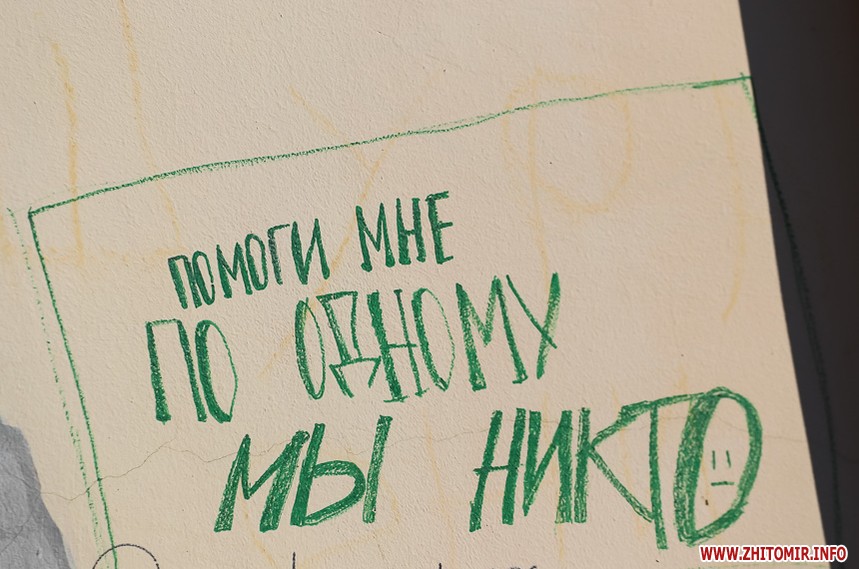 ПОМОГИ МНЕ
ПО ОДНОМУ
МЫ НИКТО
WWW.ZHITOMIR.INFO